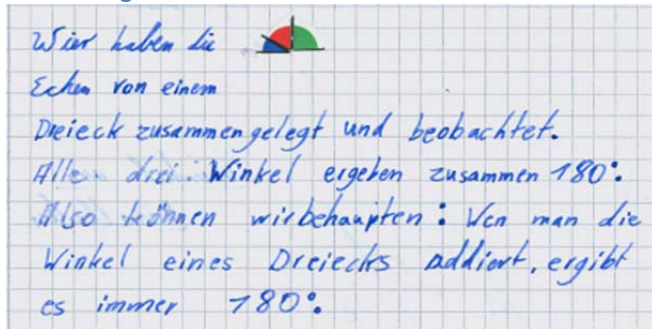 Wier haben die
Ecken von einem
Dreieck zusammengelegt und beobachtet.
Alle drei Winkel ergeben zusammen 180°.
Also können wir behaupten: Wen man die
Winkel eines Dreiecks addiert, ergibt
es immer 180°.